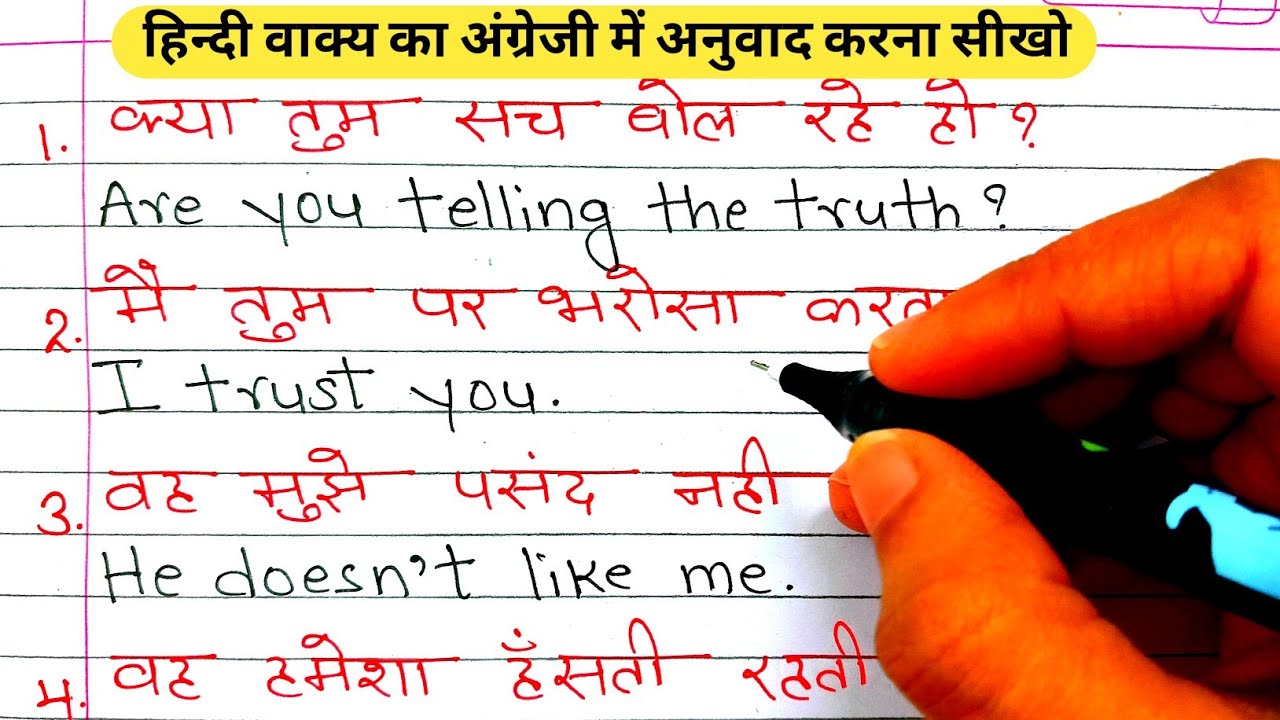 हिन्दी वाक्य का अंग्रेजी में अनुवाद करना सीखो
1. क्या तुम सच बोल रहे हो?
Are you telling the truth?
2. मै तुम पर भरोसा
I trust you.
3. वह मुझे पसंद नही
He doesn't like me.
4. वह हमेशा हँसती रहती